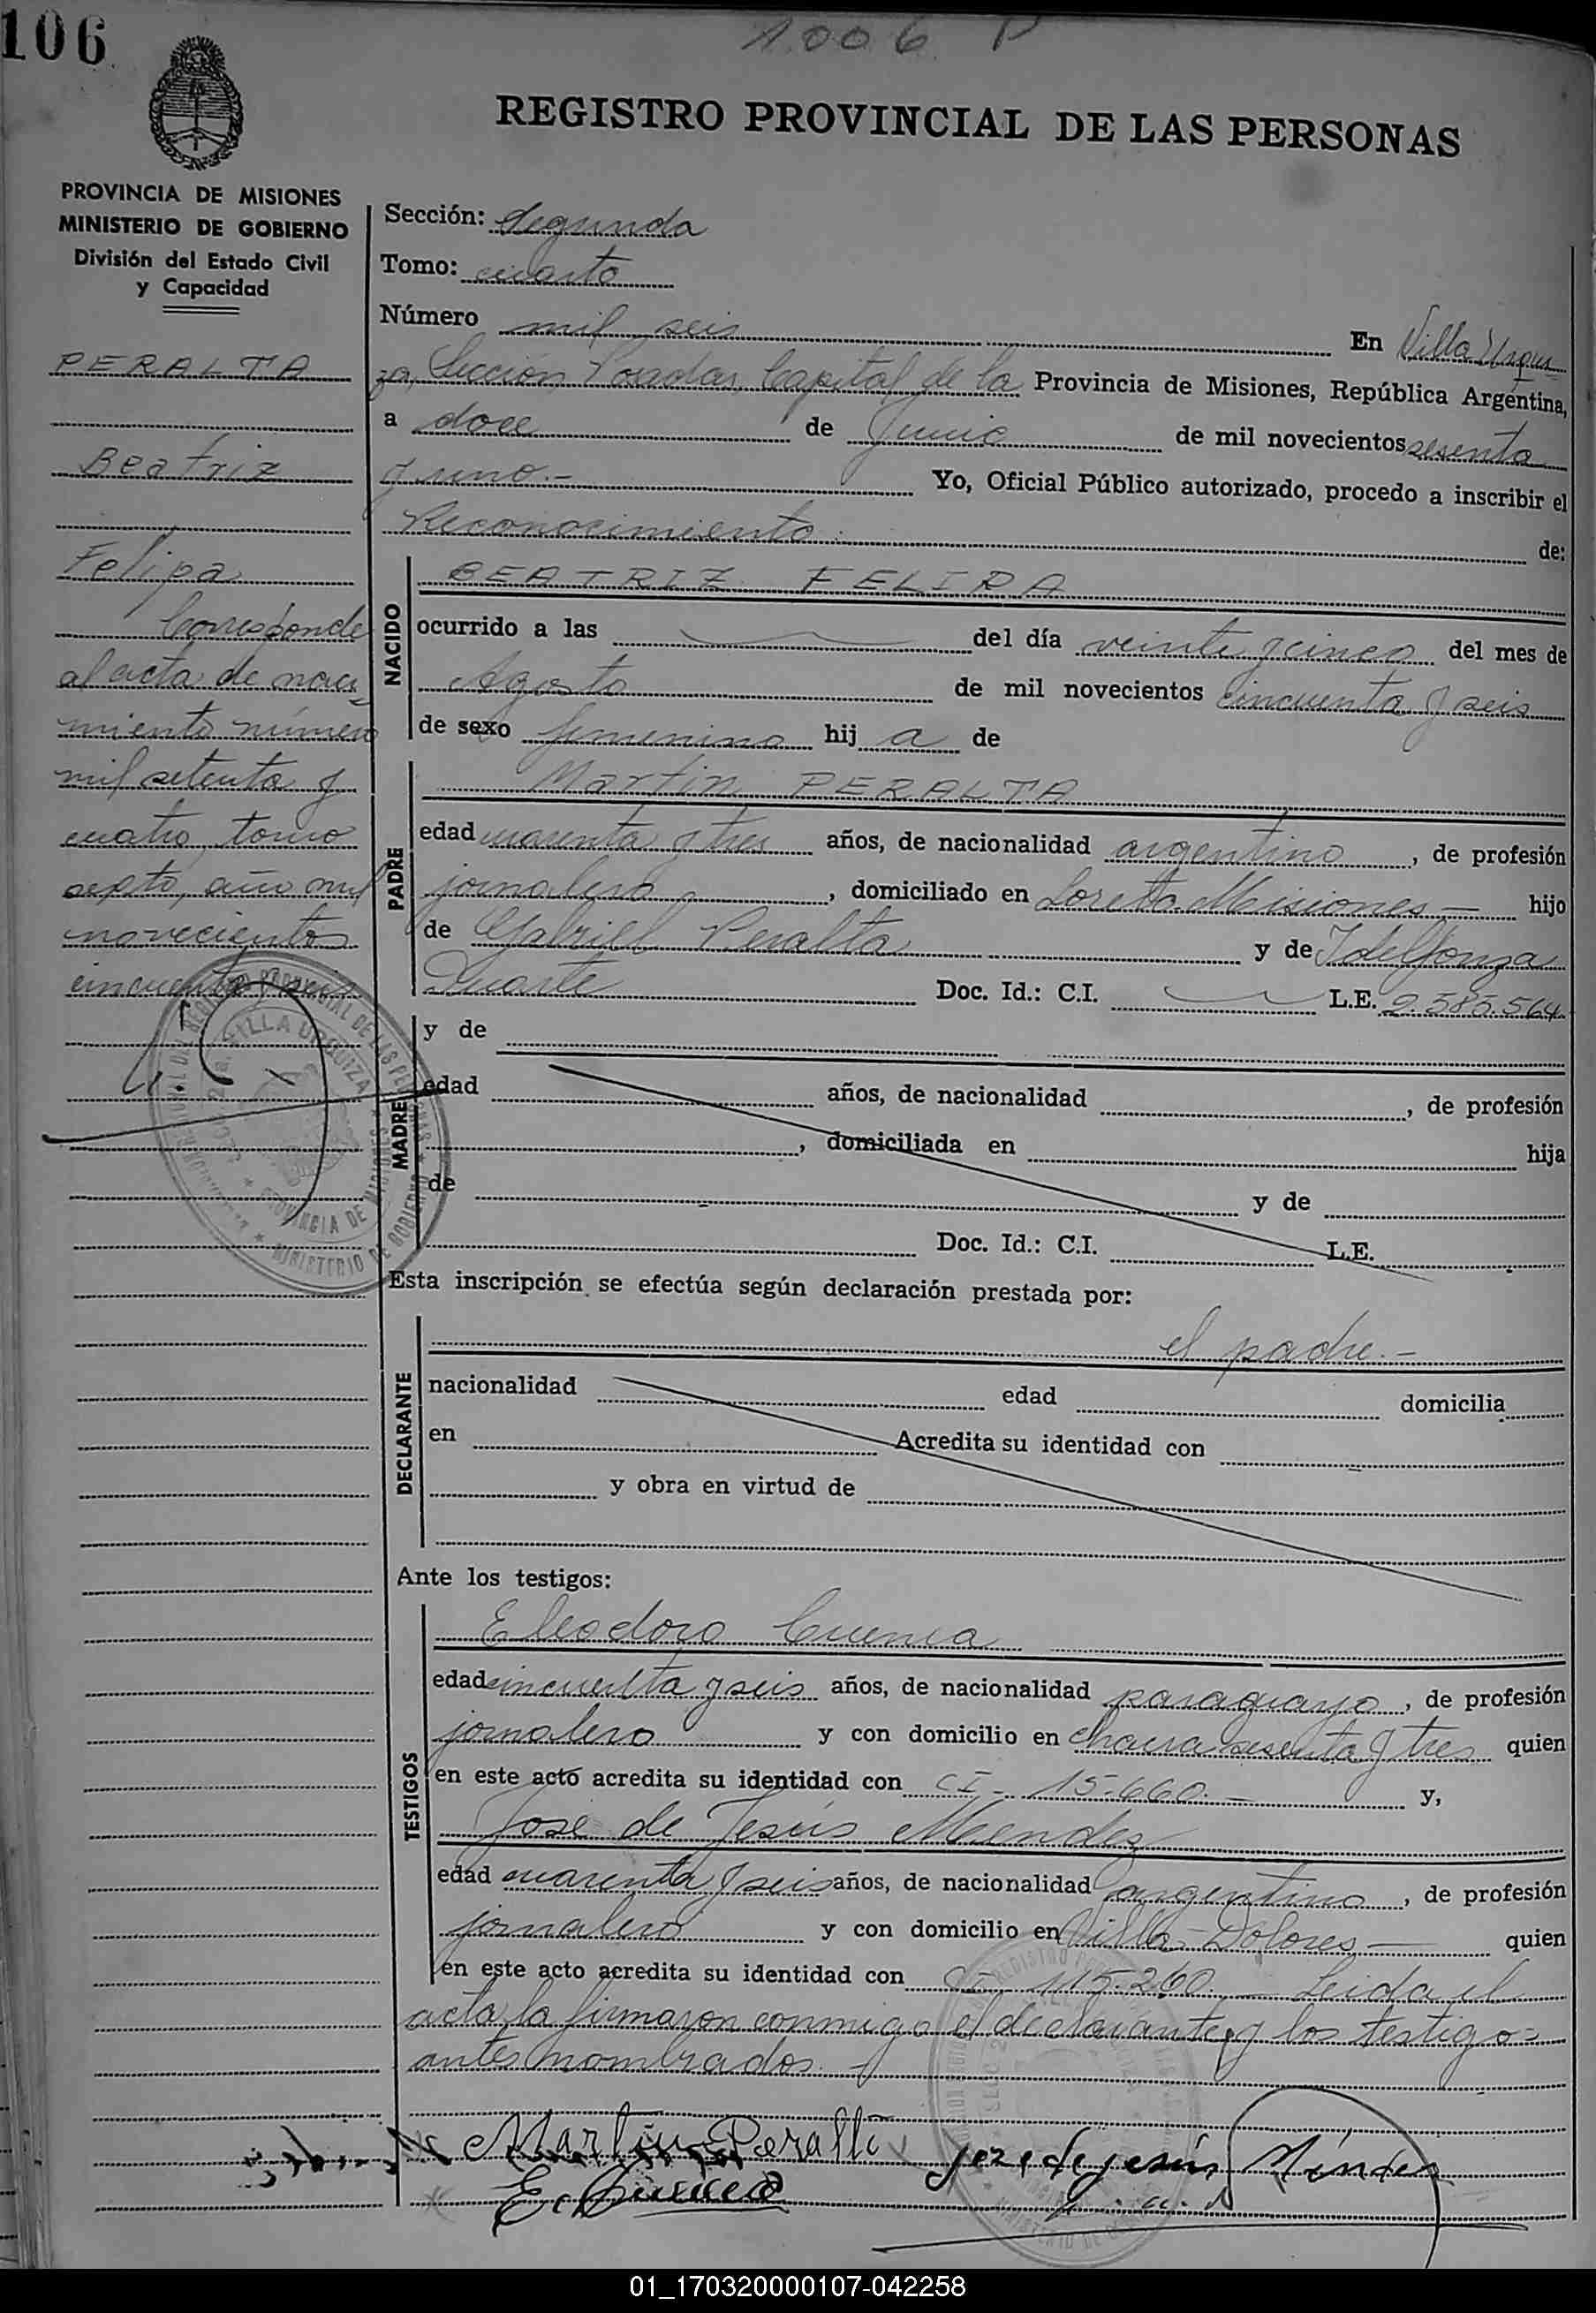 106
1006 P
REGISTRO PROVINCIAL DE LAS PERSONAS
PROVINCIA DE MISIONES
MINISTERIO DE GOBIERNO
División del Estado Civil
y Capacidad
PERALTA
Beatriz
Felipa
Corresponde
al acta de naci-
miento número
mil setenta y
cuatro, tomo
sexto, año mil
novecientos
cincuenta y seis
Sección: Segunda
Tomo: cuarto
Número mil seis En Villa Urqui-
za, Sección Posadas, Capital de la Provincia de Misiones, República Argentina,
a doce de Junio de mil novecientos sesenta
y uno.- Yo, Oficial Público autorizado, procedo a inscribir el
Reconocimiento de:
NACIDO
BEATRIZ FELIPA
ocurrido a las del día veinte y cinco del mes de
Agosto de mil novecientos cincuenta y seis
de sexo femenino hij a de
PADRE
Martin PERALTA
edad cuarenta y tres años, de nacionalidad argentino, de profesión
jornalero, domiciliado en Loreto Misiones - hijo
de Gabriel Peralta y de Idelfonza
Duarte Doc. Id.: C.I. L.E. 2.585.564
MADRE
y de
edad años, de nacionalidad , de profesión
, domiciliada en hija
de y de
Doc. Id.: C.I. L.E.
Esta inscripción se efectúa según declaración prestada por:
DECLARANTE
el padre.-
nacionalidad edad domicilia
en Acredita su identidad con
y obra en virtud de
Ante los testigos:
TESTIGOS
Eleodoro Cuenca
edad cincuenta y seis años, de nacionalidad paraguayo, de profesión
jornalero y con domicilio en chacra sesenta y tres quien
en este acto acredita su identidad con CI - 15.660.- y,
José de Jesús Mendez
edad cuarenta y seis años, de nacionalidad argentino, de profesión
jornalero y con domicilio en Villa Dolores - quien
en este acto acredita su identidad con CI 115.260.- Leida el
acta la firmaron conmigo el declarante y los testigos
antes nombrados.-
Martin Peralta Jose de Jesús Méndez
E. Cuenca
01_170320000107-042258